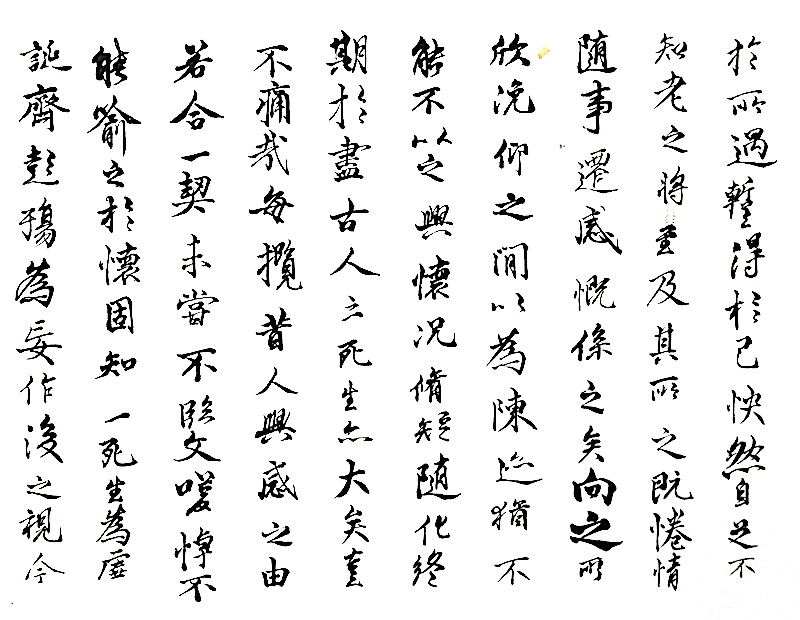 於所遇暫得於己怏然自足不
知老之將至及其所之既惓情
随事遷感慨係之矣向之所
欣俛仰之閒以為陳迹猶不
能不以之興懷况脩短随化終
期於盡古人云死生亦大矣豈
不痛哉每攬昔人興感之由
若合一契未嘗不臨文嗟悼不
能喻之於懷固知一死生為虛
誕齊彭殤為妄作後之視今